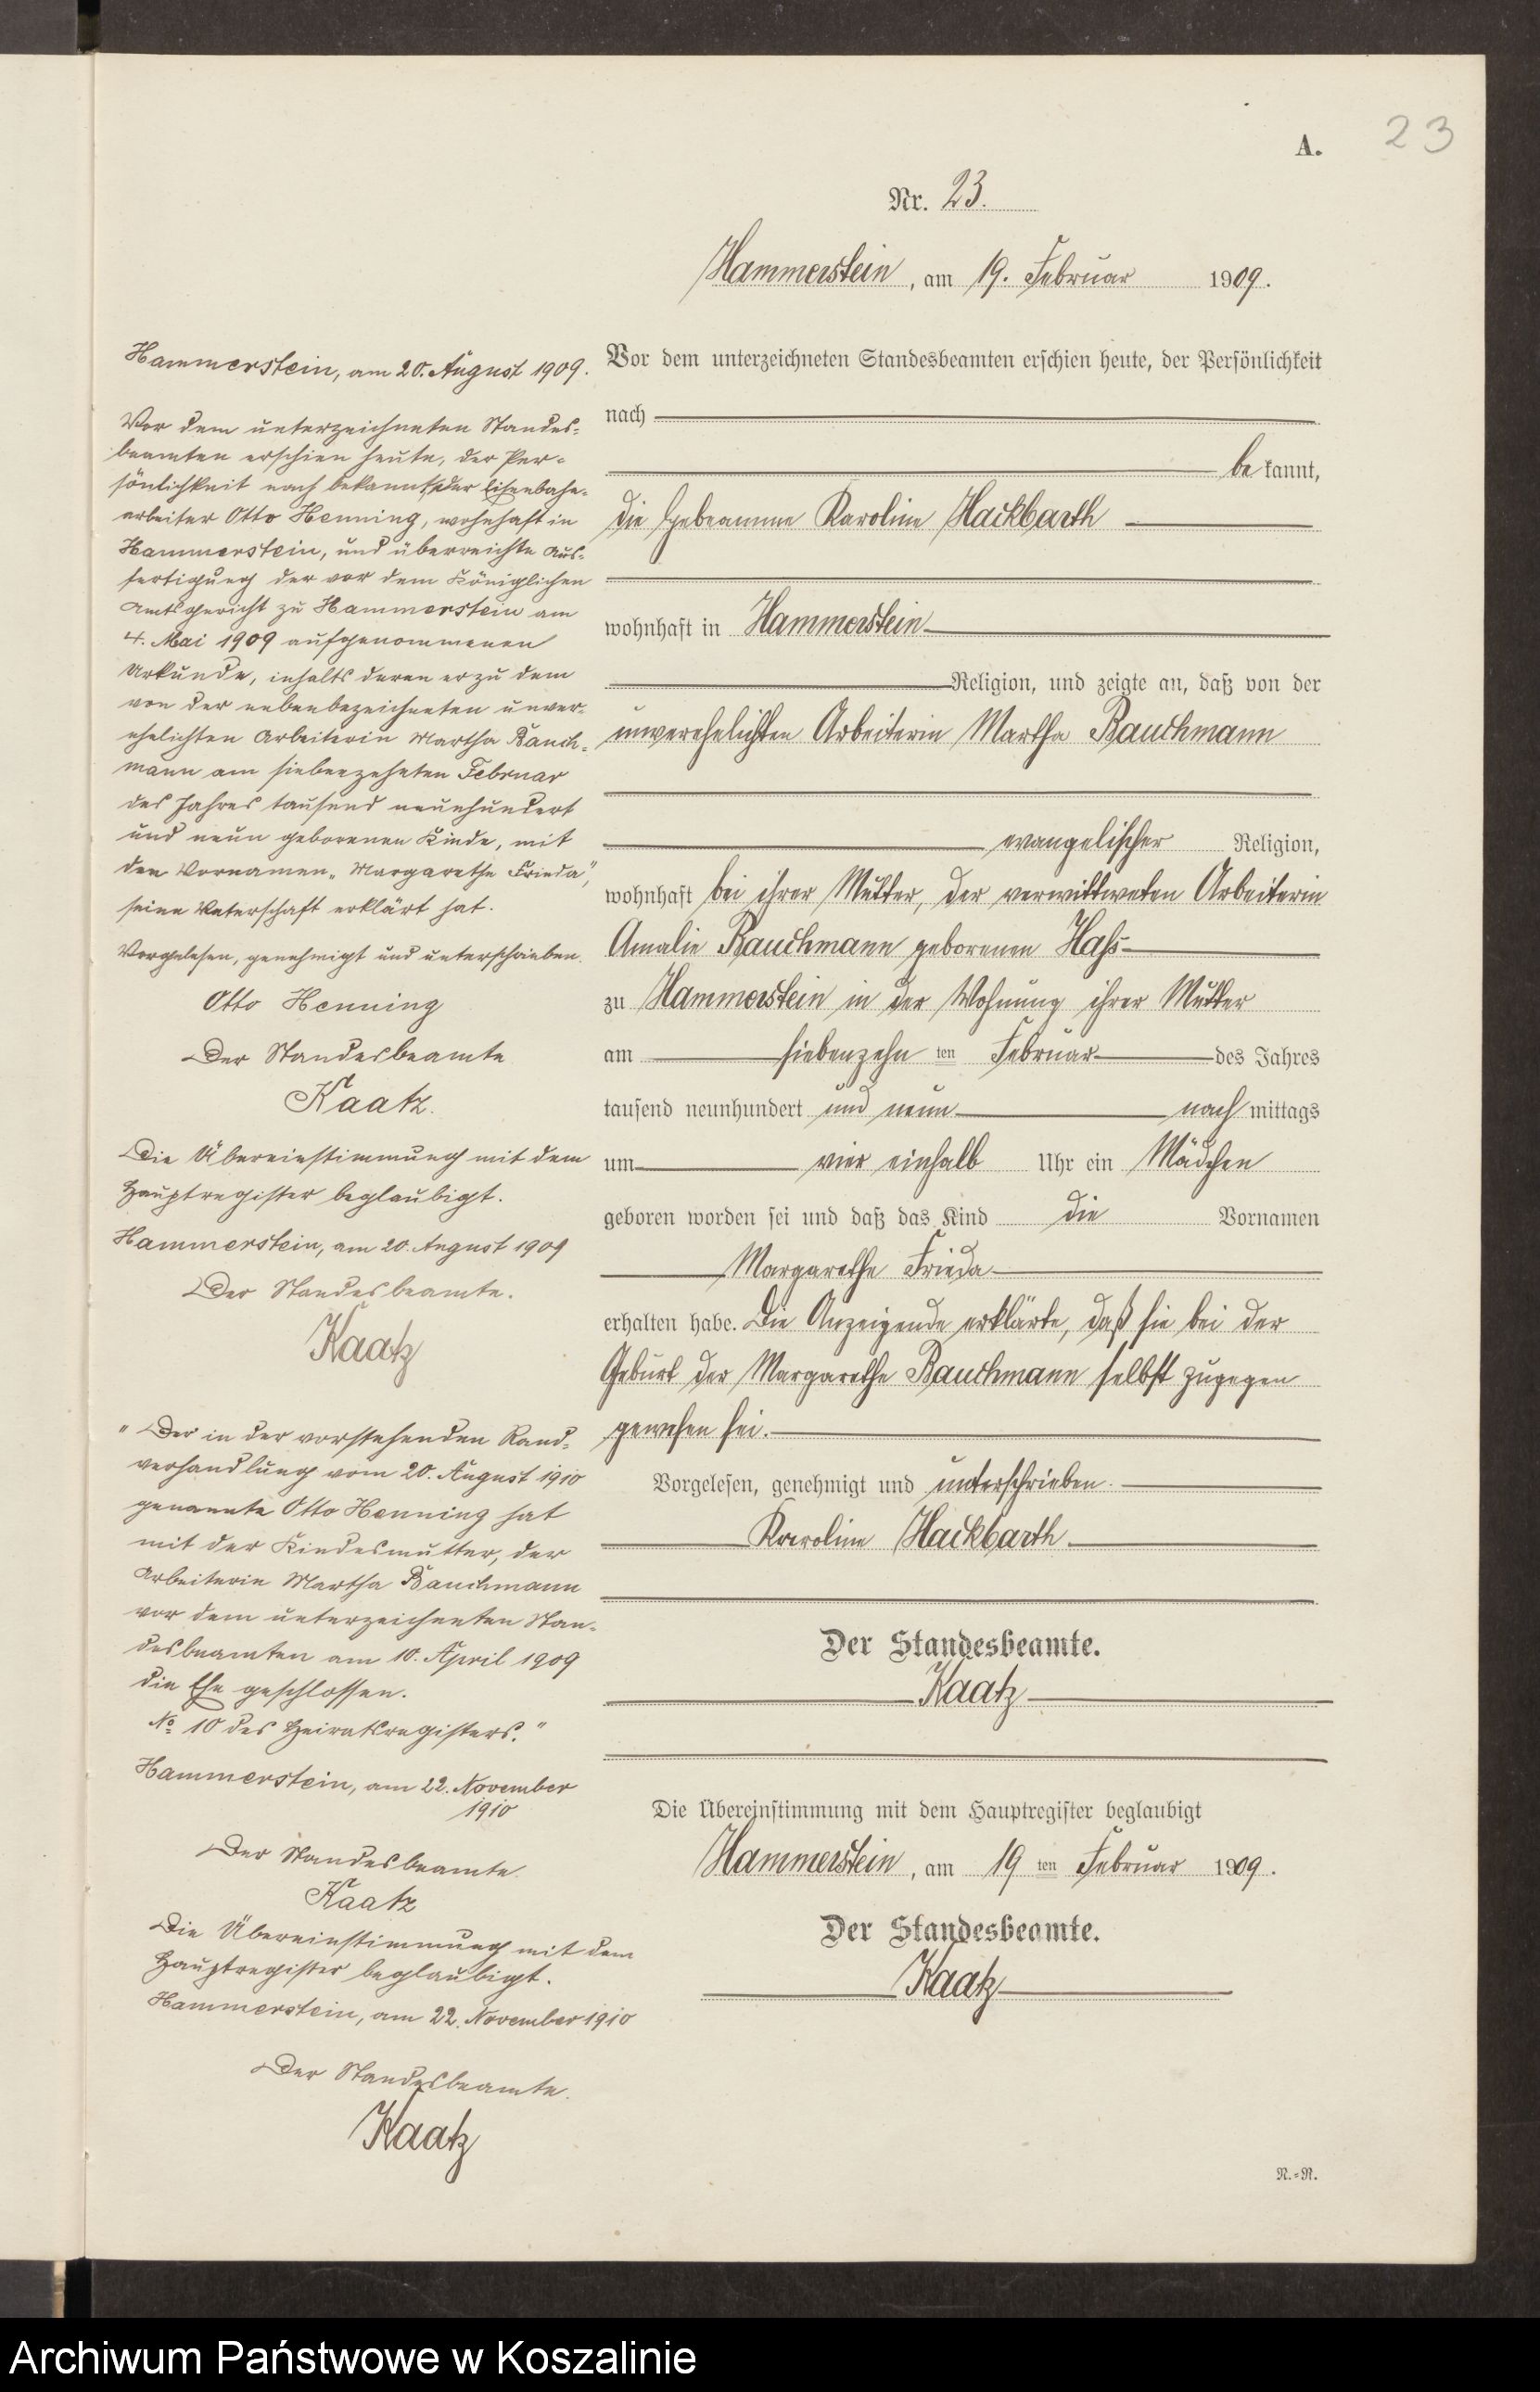 23
A.
Nr. 23.
Hammerstein, am 19. Februar 1909.
Vor dem unterzeichneten Standesbeamten erschien heute, der Persönlichkeit
nach
be kannt,
die Hebeamme Karoline Hackbarth
wohnhaft in Hammerstein
Religion, und zeigte an, daß von der
unverehelichten Arbeiterin Martha Bauchmann
evangelischer Religion,
wohnhaft bei ihrer Mutter, der verwittweten Arbeiterin
Amalie Bauchmann geborenen Hass
zu Hammerstein in der Wohnung ihrer Mutter
am siebenzehn ten Februar des Jahres
tausend neunhundert und neun nach mittags
um vier einhalb Uhr ein Mädchen
geboren worden sei und daß das Kind die Vornamen
Margarethe Frieda
erhalten habe. Die Anzeigende erklärte, daß sie bei der
Geburt der Margarethe Bauchmann selbst zugegen
gewesen sei.
Vorgelesen, genehmigt und unterschrieben.
Karoline Hackbarth
Der Standesbeamte.
Kaatz
Die Übereinstimmung mit dem Hauptregister beglaubigt
Hammerstein, am 19 ten Februar 1909.
Der Standesbeamte.
Kaatz
N.=N.
Hammerstein, am 20. August 1909.
Vor dem unterzeichneten Standes-
beamten erschien heute, der Per-
sönlichkeit nach bekannt, der Eisenbahn-
arbeiter Otto Henning, wohnhaft in
Hammerstein, und überreichte Aus-
fertigung der vor dem Königlichen
Amtsgericht zu Hammerstein am
4. Mai 1909 aufgenommenen
Urkunde, inhalts deren er zu dem
von der nebenbezeichneten unver-
ehelichten Arbeiterin Martha Bauch-
mann am siebenzehnten Februar
des Jahres tausend neunhundert
und neun geborenen Kinde, mit
den Vornamen „Margarethe Frieda",
seine Vaterschaft erklärt hat.
Vorgelesen, genehmigt und unterschrieben.
Otto Henning
Der Standesbeamte
Kaatz.
Die Übereinstimmung mit dem
Hauptregister beglaubigt.
Hammerstein, am 20. August 1909
Der Standesbeamte.
Kaatz
"Der in der vorstehenden Rand-
verhandlung vom 20. August 1910
genannte Otto Henning hat
mit der Kindesmutter, der
Arbeiterin Martha Bauchmann
vor dem unterzeichneten Stan-
desbeamten am 10. April 1909
die Ehe geschlossen.
No 10 des Heiratsregisters."
Hammerstein, am 22. November
1910
Der Standesbeamte
Kaatz
Die Übereinstimmung mit dem
Hauptregister beglaubigt.
Hammerstein, am 22. November 1910
Der Standesbeamte.
Kaatz
Archiwum Państwowe w Koszalinie